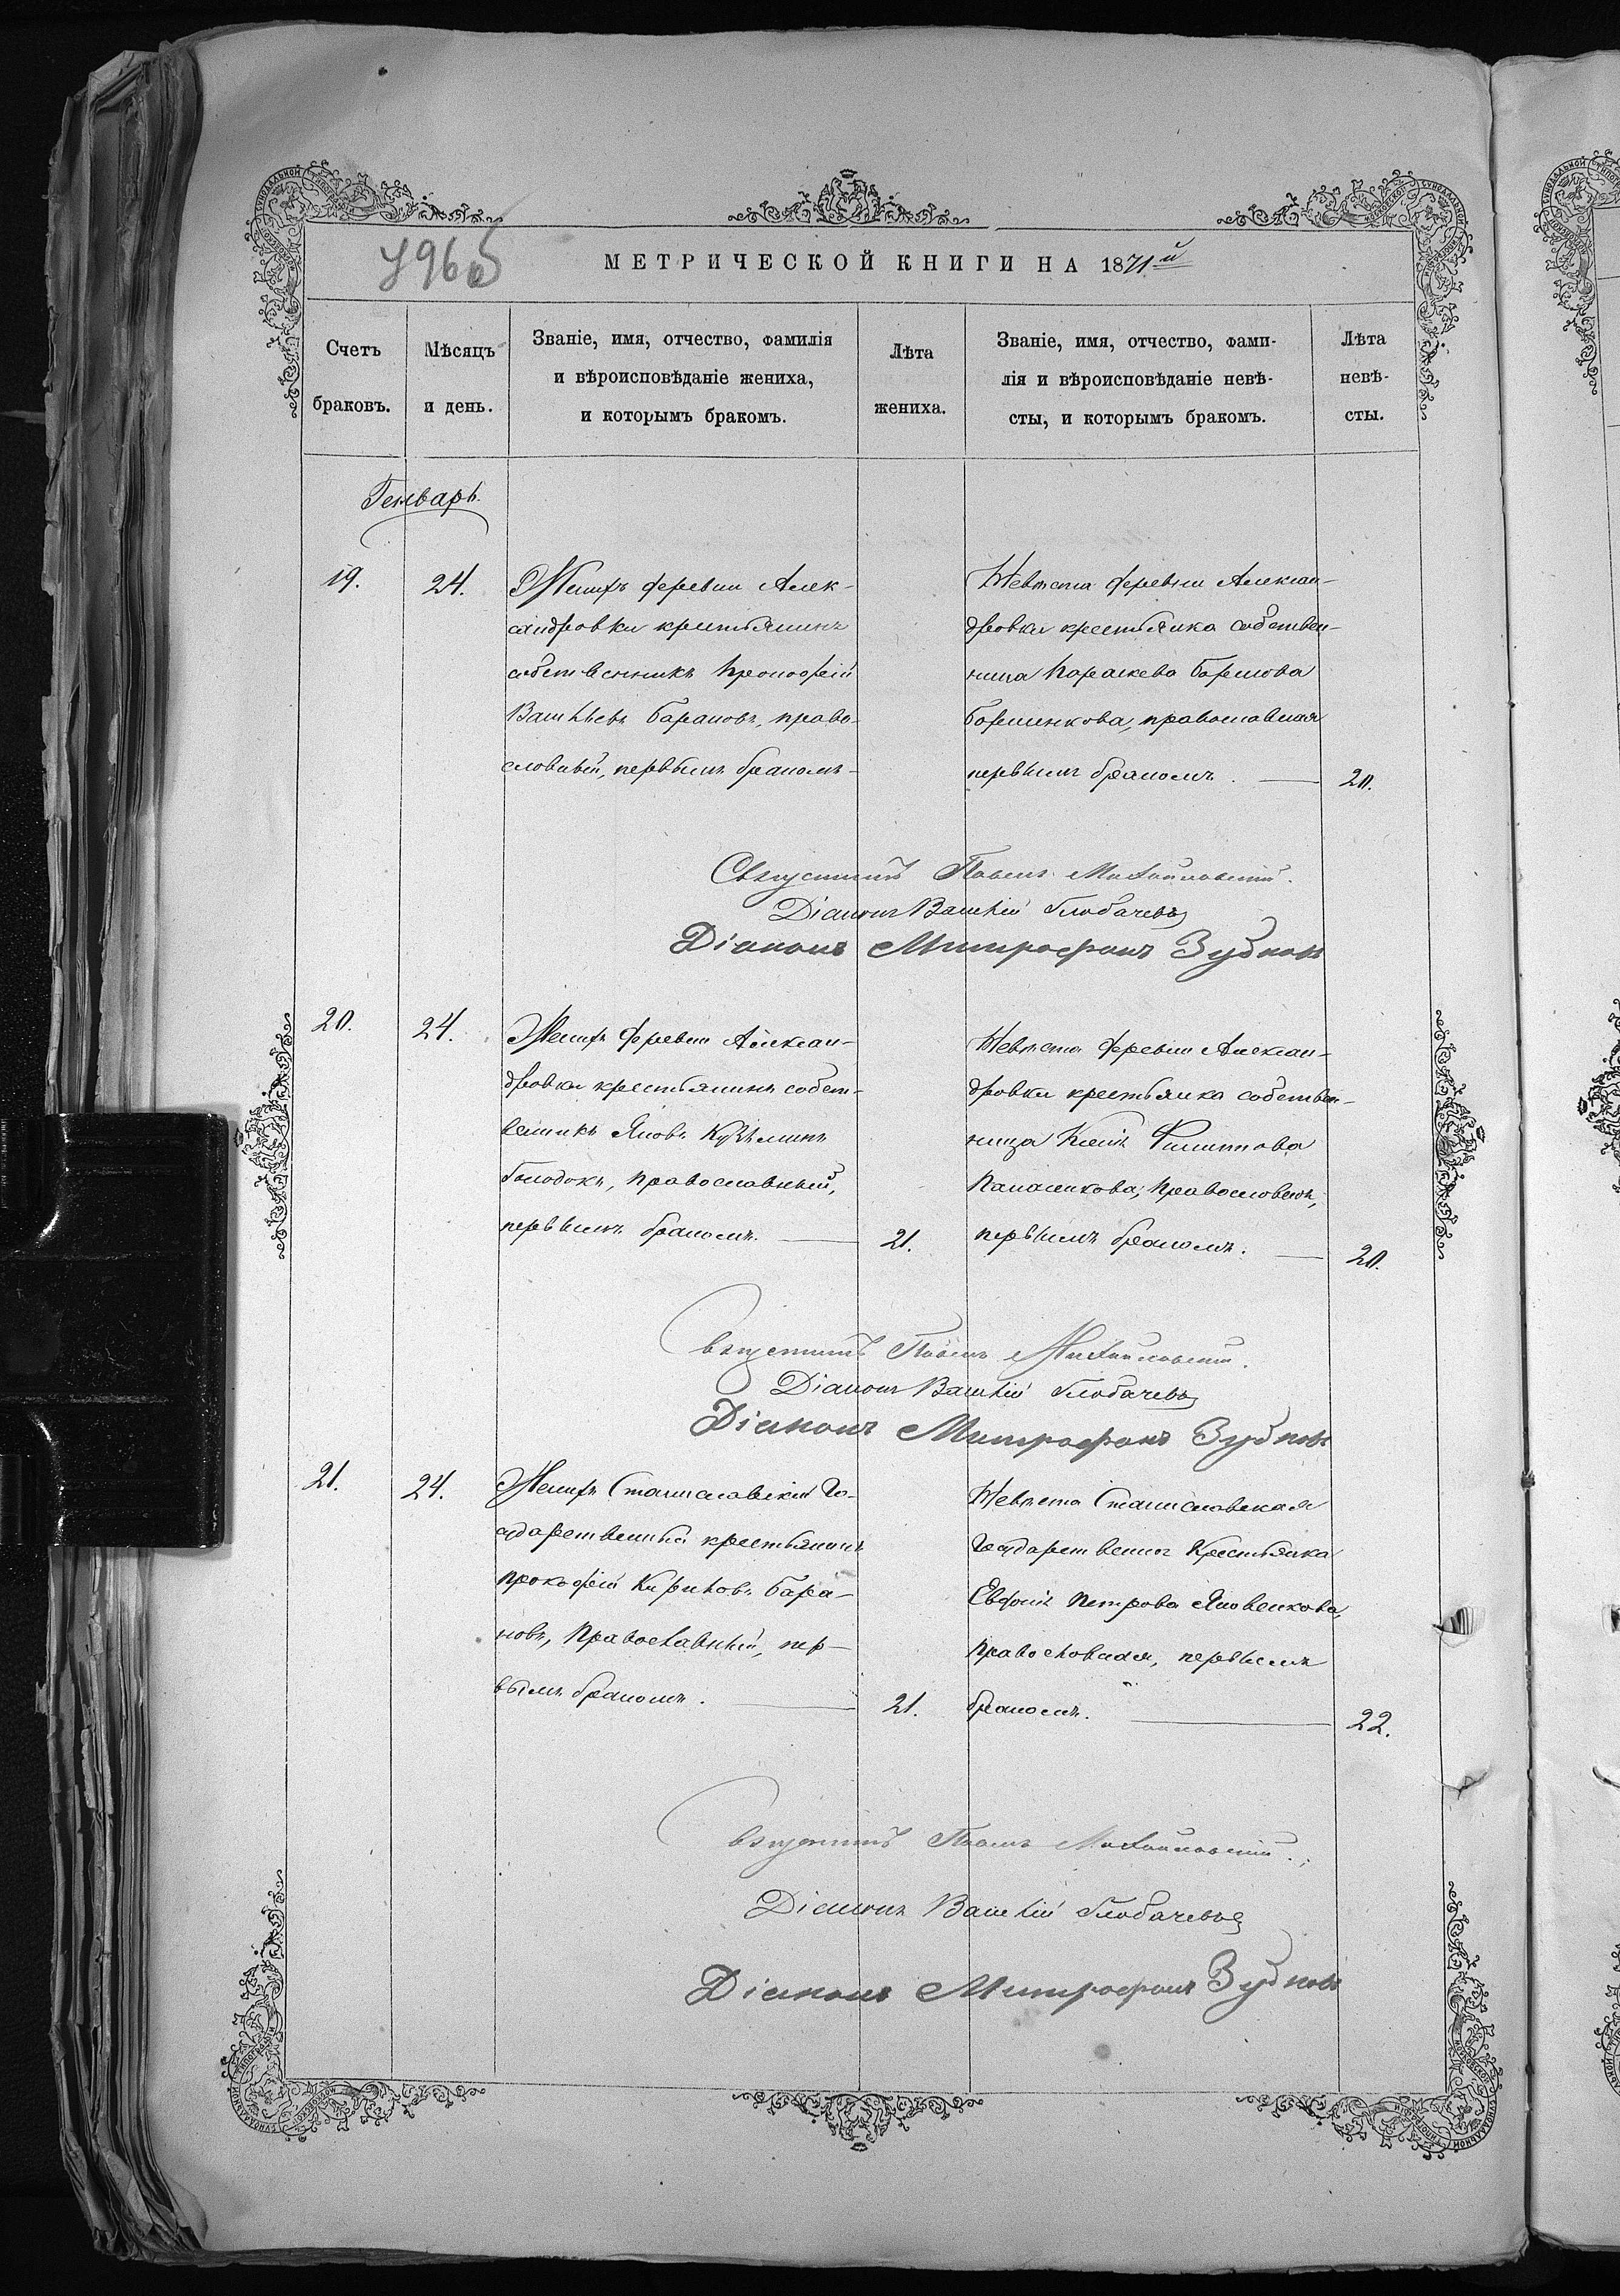 МЕТРИЧЕСКОЙ КНИГИ НА 1871й
Счетъ браковъ.
Мѣсяцъ и день.
Званіе, имя, отчество, фамилія
и вѣроисповѣданіе жениха,
и которымъ бракомъ.
Лѣта жениха.
Званіе, имя, отчество, фами-
лія и вѣроисповѣданіе невѣ-
сты, и которымъ бракомъ.
Лѣта невѣ-
сты.
Генварь.
19.
24.
Женихъ деревни Алек-
сандровки крестьянинъ
собственникъ Прокофій
Васильевъ Барановъ, право-
славный, первымъ бракомъ
Невѣста деревни Алексан-
дровки крестьянка собствен-
ница Параскева
православная
первымъ бракомъ.
20.
Священникъ Павелъ Михайловскій.
Діаконъ Василій Глобачевъ
Діаконъ Митрофанъ Зубковъ
20.
24.
Женихъ деревни Алексан-
дровки крестьянинъ собст-
венникъ Яковъ Кузьминъ
Голодокъ, православный,
первымъ бракомъ.
21.
Невѣста деревни Алексан-
дровки крестьянка собствен-
ница Филиппова
Панасенкова, православная,
первымъ бракомъ.
20.
Священникъ Павелъ Михайловскій.
Діаконъ Василій Глобачевъ
Діаконъ Митрофанъ Зубковъ
21.
24.
Женихъ Станиславскій Го-
сударственный крестьянинъ
Прокофій Кириловъ Бара-
новъ, Православный, пер-
вымъ бракомъ.
21.
Невѣста Станиславская
Государственная Крестьянка
Евфимія Петрова Яковенкова,
православная, первымъ
бракомъ.
22.
Священникъ Павелъ Михайловскій.
Діаконъ Василій Глобачевъ
Діаконъ Митрофанъ Зубковъ